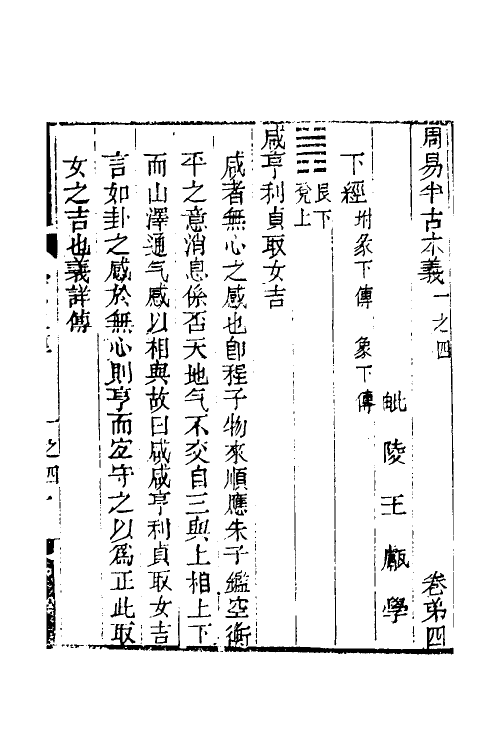 周易半古本義一之四 卷第四
毗陵王𢋫學
下經 坿彖下傳 象下傳
艮下
兌上
咸亨利貞取女吉
咸者無心之感也卽程子物來順應朱子鑑空衡
平之意消息係否天地气不交自三與上相上下
而山澤通气感以相與故曰咸咸亨利貞取女吉
言如卦之感於無心則亨而宐守之以爲正此取
女之吉也義詳傳
一之四 一